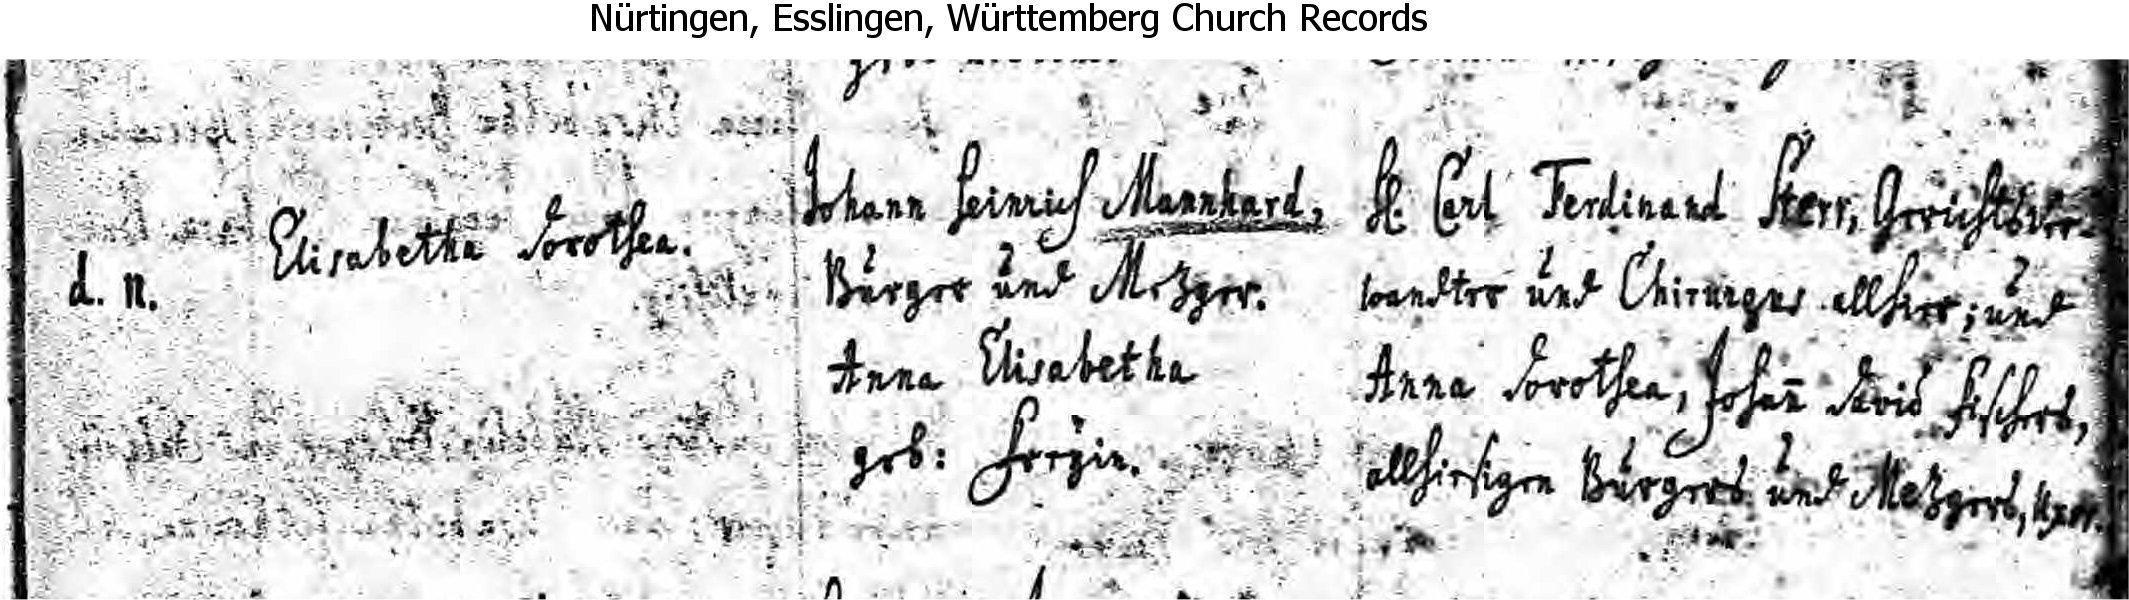 Nürtingen, Esslingen, Württemberg Church Records
d. n.
Elisabetha Dorothea.
Johann Heinrich Mannhard,
Bürger und Metzger.
Anna Elisabetha
geb:
H. Carl Ferdinand Gerichtsver-
wandter und Chirurgus allhier; und
Anna Dorothea, Johañ David Fischers,
allhiesigen Bürgers und Metzgers, Uxor.